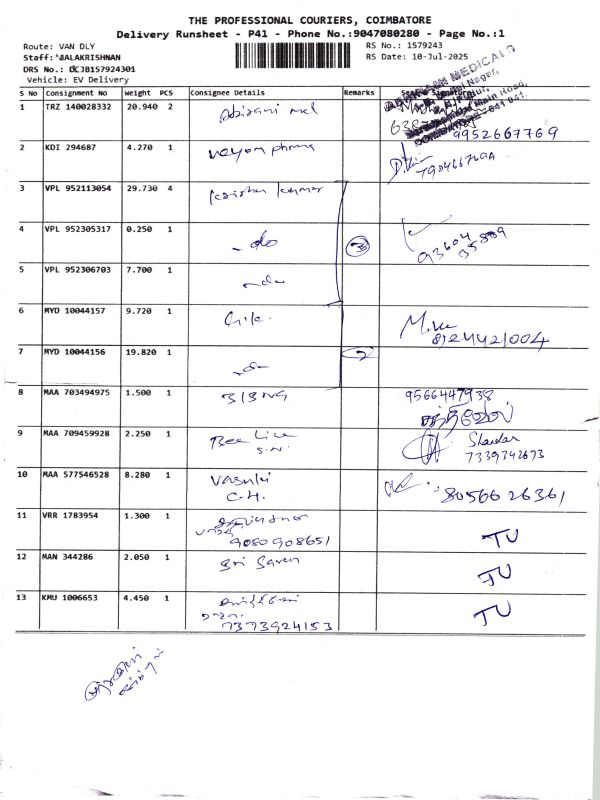 THE PROFESSIONAL COURIERS, COIMBATORE
Delivery Runsheet - P41 - Phone No.:9047080280 - Page No.:1
Route: VAN DLY RS No.: 1579243
Staff: BALAKRISHNAN RS Date: 10-Jul-2025
DRS No.: DCJB157924301
Vehicle: EV Delivery
S No Consignment No Weight PCS Consignee Details Remarks
1 TRZ 140028332 20.940 2
9952667769
2 KDI 294687 4.270 1
3 VPL 952113054 29.730 4
4 VPL 952305317 0.250 1 - do 3
93604
35889
5 VPL 952306703 7.700 1 - do
6 MYD 10044157 9.720 1
8124421004
7 MYD 10044156 19.820 1 - do 2
8 MAA 703494975 1.500 1 9566447938
சக்திவேல்
9 MAA 709459928 2.250 1 Bee Line
S.N. 7339342673
10 MAA 577546528 8.280 1 Vasuki
C.H. 8056626361
11 VRR 1783954 1.300 1
9080908651 TU
12 MAN 344286 2.050 1 Sri Saren TU
13 KMU 1006653 4.450 1
7373924153 TU